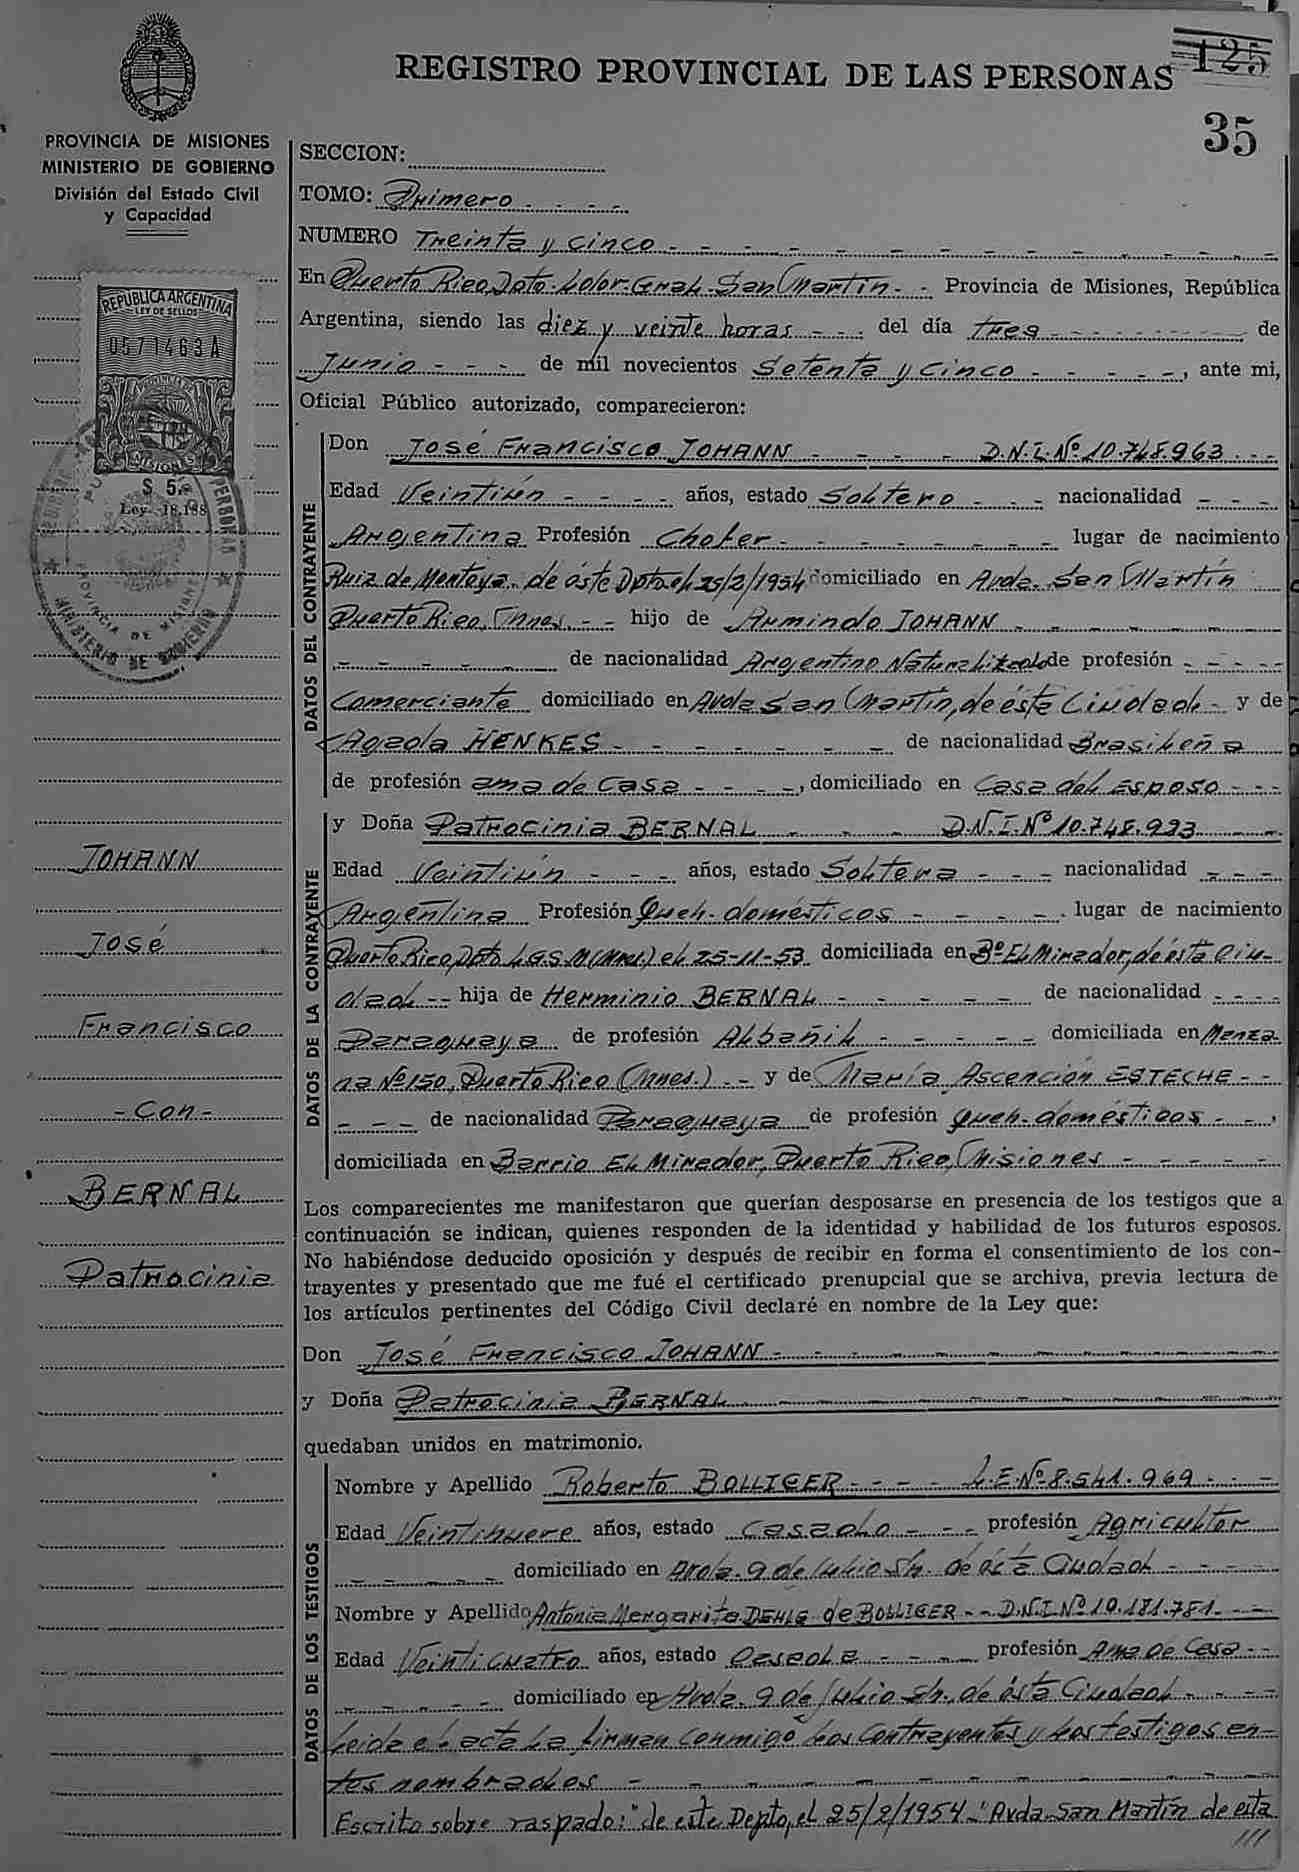 REGISTRO PROVINCIAL DE LAS PERSONAS
125
35
PROVINCIA DE MISIONES
MINISTERIO DE GOBIERNO
División del Estado Civil
y Capacidad
REPUBLICA ARGENTINA
LEY DE SELLOS
0571463A
MISIONES
$ 5.-
Ley 18.188
PROVINCIA DE MISIONES
MINISTERIO DE GOBIERNO
JOHANN
José
Francisco
- Con -
BERNAL
Patrocinia
SECCION:
TOMO: Primero - - - -
NUMERO Treinta y cinco - - - - - - - - - - - - -
En Puerto Rico, Dpto. Ldor. Gral. San Martín - - Provincia de Misiones, República
Argentina, siendo las diez y veinte horas - - - del día tres - - - - - - - - - de
Junio - - - - de mil novecientos Setenta y Cinco - - - - - -, ante mi,
Oficial Público autorizado, comparecieron:
DATOS DEL CONTRAYENTE
Don José Francisco JOHANN - - - - D.N.I. Nº 10.748.963 - - -
Edad Veintiún - - - - años, estado Soltero - - - nacionalidad - - - -
Argentina Profesión Chofer - - - - - - - - lugar de nacimiento
Ruiz de Montoya - de éste Dpto. el 25/2/1954 domiciliado en Avda. San Martín
Puerto Rico, Mnes. - - hijo de Armindo JOHANN - - - - - - - -
- - - - - - - de nacionalidad Argentino Naturalizado de profesión - - - - -
Comerciante domiciliado en Avda San Martín, de ésta Ciudad - y de
Agada HENKES - - - - - - - - de nacionalidad Brasileña
de profesión ama de casa - - - -, domiciliado en Casa del Esposo - - -
DATOS DE LA CONTRAYENTE
y Doña Patrocinia BERNAL - - - D.N.I. Nº 10.748.993 - -
Edad Veintiún - - - años, estado Soltera - - - nacionalidad - - -
Argentina Profesión Queh. domésticos - - - - - lugar de nacimiento
Puerto Rico, Dpto L.G.S.M (Mnes.) el 25-11-53 domiciliada en Bº El Mirador, de ésta Ciu-
dad - - hija de Herminio BERNAL - - - - - - de nacionalidad - - - -
Paraguaya de profesión Albañil - - - - - domiciliada en Manza-
na Nº 150, Puerto Rico (Mnes.) - - y de María Ascención ESTECHE - -
- - - de nacionalidad Paraguaya de profesión Queh. domésticos - - ,
domiciliada en Barrio El Mirador, Puerto Rico, Misiones - - - - -
Los comparecientes me manifestaron que querían desposarse en presencia de los testigos que a
continuación se indican, quienes responden de la identidad y habilidad de los futuros esposos.
No habiéndose deducido oposición y después de recibir en forma el consentimiento de los con-
trayentes y presentado que me fué el certificado prenupcial que se archiva, previa lectura de
los artículos pertinentes del Código Civil declaré en nombre de la Ley que:
Don José Francisco JOHANN - - - - - - - - - - -
y Doña Patrocinia BERNAL - - - - - - - - - - -
quedaban unidos en matrimonio.
DATOS DE LOS TESTIGOS
Nombre y Apellido Roberto BOLLIGER - - - - L.E. Nº 8.541.969 - - -
Edad Veintinueve años, estado casado - - - profesión Agricultor
- - - - - - domiciliado en Avda. 9 de Julio S/n. de ésta Ciudad - - - - -
Nombre y Apellido Antonia Margarita DEHLE de BOLLIGER - - D.N.I. Nº 10.181.781 - - -
Edad Veinticuatro años, estado Casada - - - - profesión Ama de Casa - -
- - - - - domiciliado en Avda. 9 de Julio S/n. de ésta Ciudad - - - -
Leida el acta La firman conmigo los Contrayentes y los testigos an-
tes nombrados - - - - - - - - - - -
Escrito sobre raspado: "de este Depto, el 25/2/1954 - "Avda. San Martín de esta
///